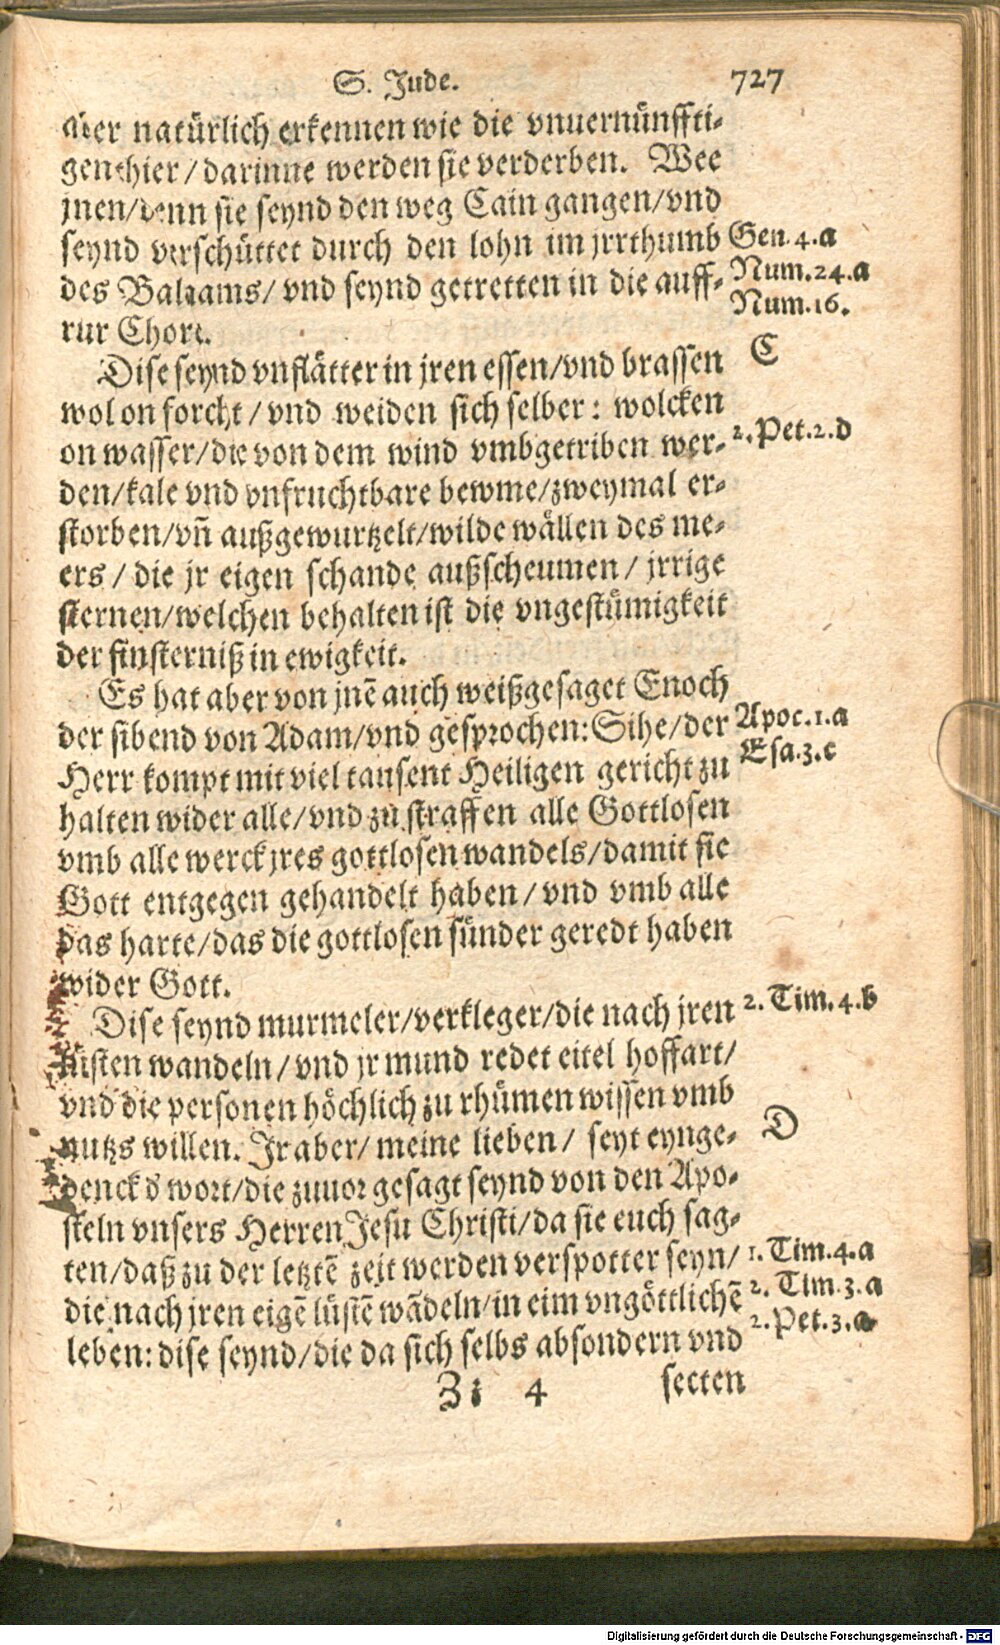 S. Jude. 727
aber natürlich erkennen wie die vnuernünffti-
gen thier / darinne werden sie verderben. Wee
jnen/denn sie seynd den weg Cain gangen/vnd
seynd verschüttet durch den lohn im jrrthumb
Gen. 4. a
des Balaams/ vnd seynd getretten in die auff-
Num. 24. a
rur Chore.
Num. 16.
Dise seynd vnflätter in jren essen/vnd brassen
C
wol on forcht / vnd weiden sich selber: wolcken
on wasser/die von dem wind vmbgetriben wer-
2. Pet. 2. d
den/kale vnd vnfruchtbare bewme/zweymal er-
storben/vñ außgewurtzelt/wilde wällen des me-
ers / die jr eigen schande außscheumen / jrrige
sternen/welchen behalten ist die vngestümigkeit
der finsterniß in ewigkeit.
Es hat aber von jnē auch weißgesaget Enoch
der sibend von Adam/vnd gesprochen: Sihe/der
Apoc. 1. a
Herr kompt mit viel tausent Heiligen gericht zu
Esa. 3. c
halten wider alle/vnd zu straffen alle Gottlosen
vmb alle werck jres gottlosen wandels/damit sie
Gott entgegen gehandelt haben / vnd vmb alle
das harte/das die gottlosen sünder geredt haben
wider Gott.
Dise seynd murmeler/verkleger/die nach jren
2. Tim. 4. b
lüsten wandeln / vnd jr mund redet eitel hoffart/
vnd die personen höchlich zu rhümen wissen vmb
nutzs willen. Jr aber/ meine lieben / seyt eynge-
D
denck d wort/die zuuor gesagt seynd von den Apo-
steln vnsers Herren Jesu Christi/da sie euch sag-
ten/daß zu der letztē zeit werden verspotter seyn/
1. Tim. 4. a
die nach jren eigē lüstē wādeln/in eim vngöttlichē
2. Tim. 3. a
leben: dise seynd/die da sich selbs absondern vnd
2. Pet. 3. a
Zz 4 secten
Digitalisierung gefördert durch die Deutsche Forschungsgemeinschaft - DFG